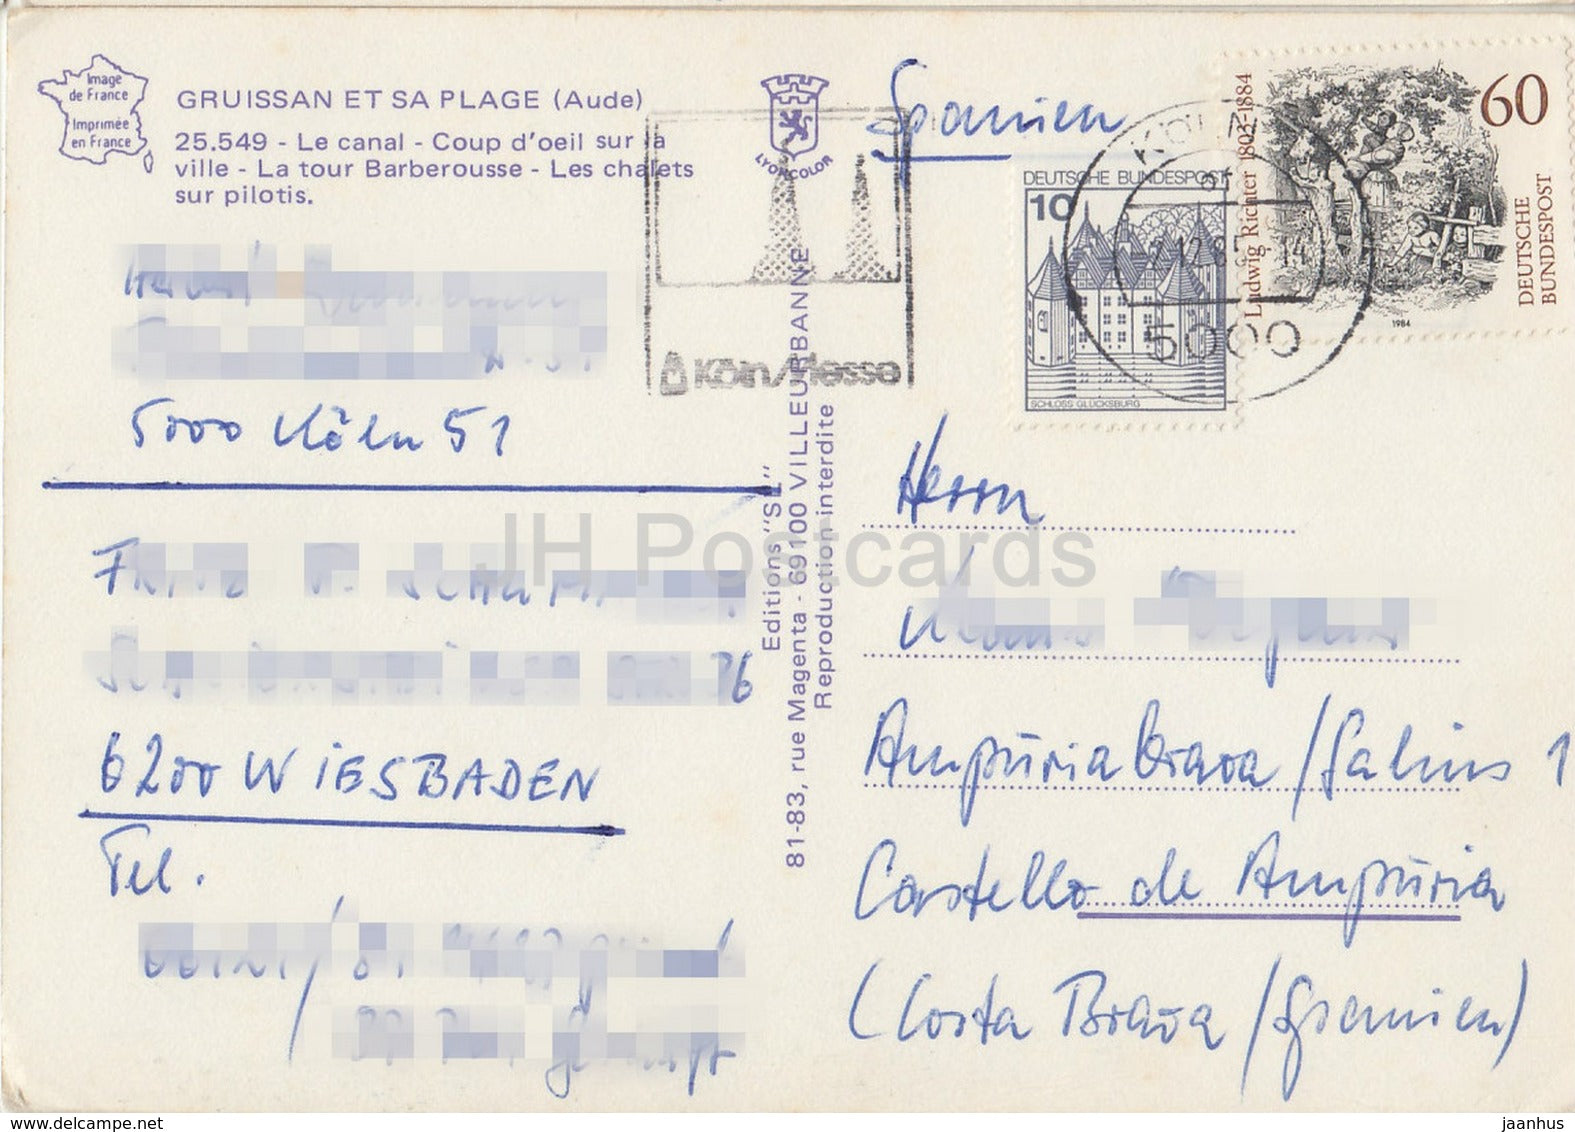 Image
de France
Imprimée
en France
GRUISSAN ET SA PLAGE (Aude)
25.549 - Le canal - Coup d'oeil sur la
ville - La tour Barberousse - Les chalets
sur pilotis.
LYONCOLOR
Spanien
DEUTSCHE BUNDESPOST
10
SCHLOSS GLÜCKSBURG
60
DEUTSCHE
BUNDESPOST
Ludwig Richter 1803-1884
1984
5000
Köln/Messe
5000 Köln 51
6200 WIESBADEN
Tel.
Editions "SL"
81-83, rue Magenta - 69100 VILLEURBANNE
Reproduction interdite
Herrn
Ampūria brava / Salins 1
Castello de Ampūria
(Costa Brava / Spanien)
JH Postcards
www.delcampe.net
jaanhus